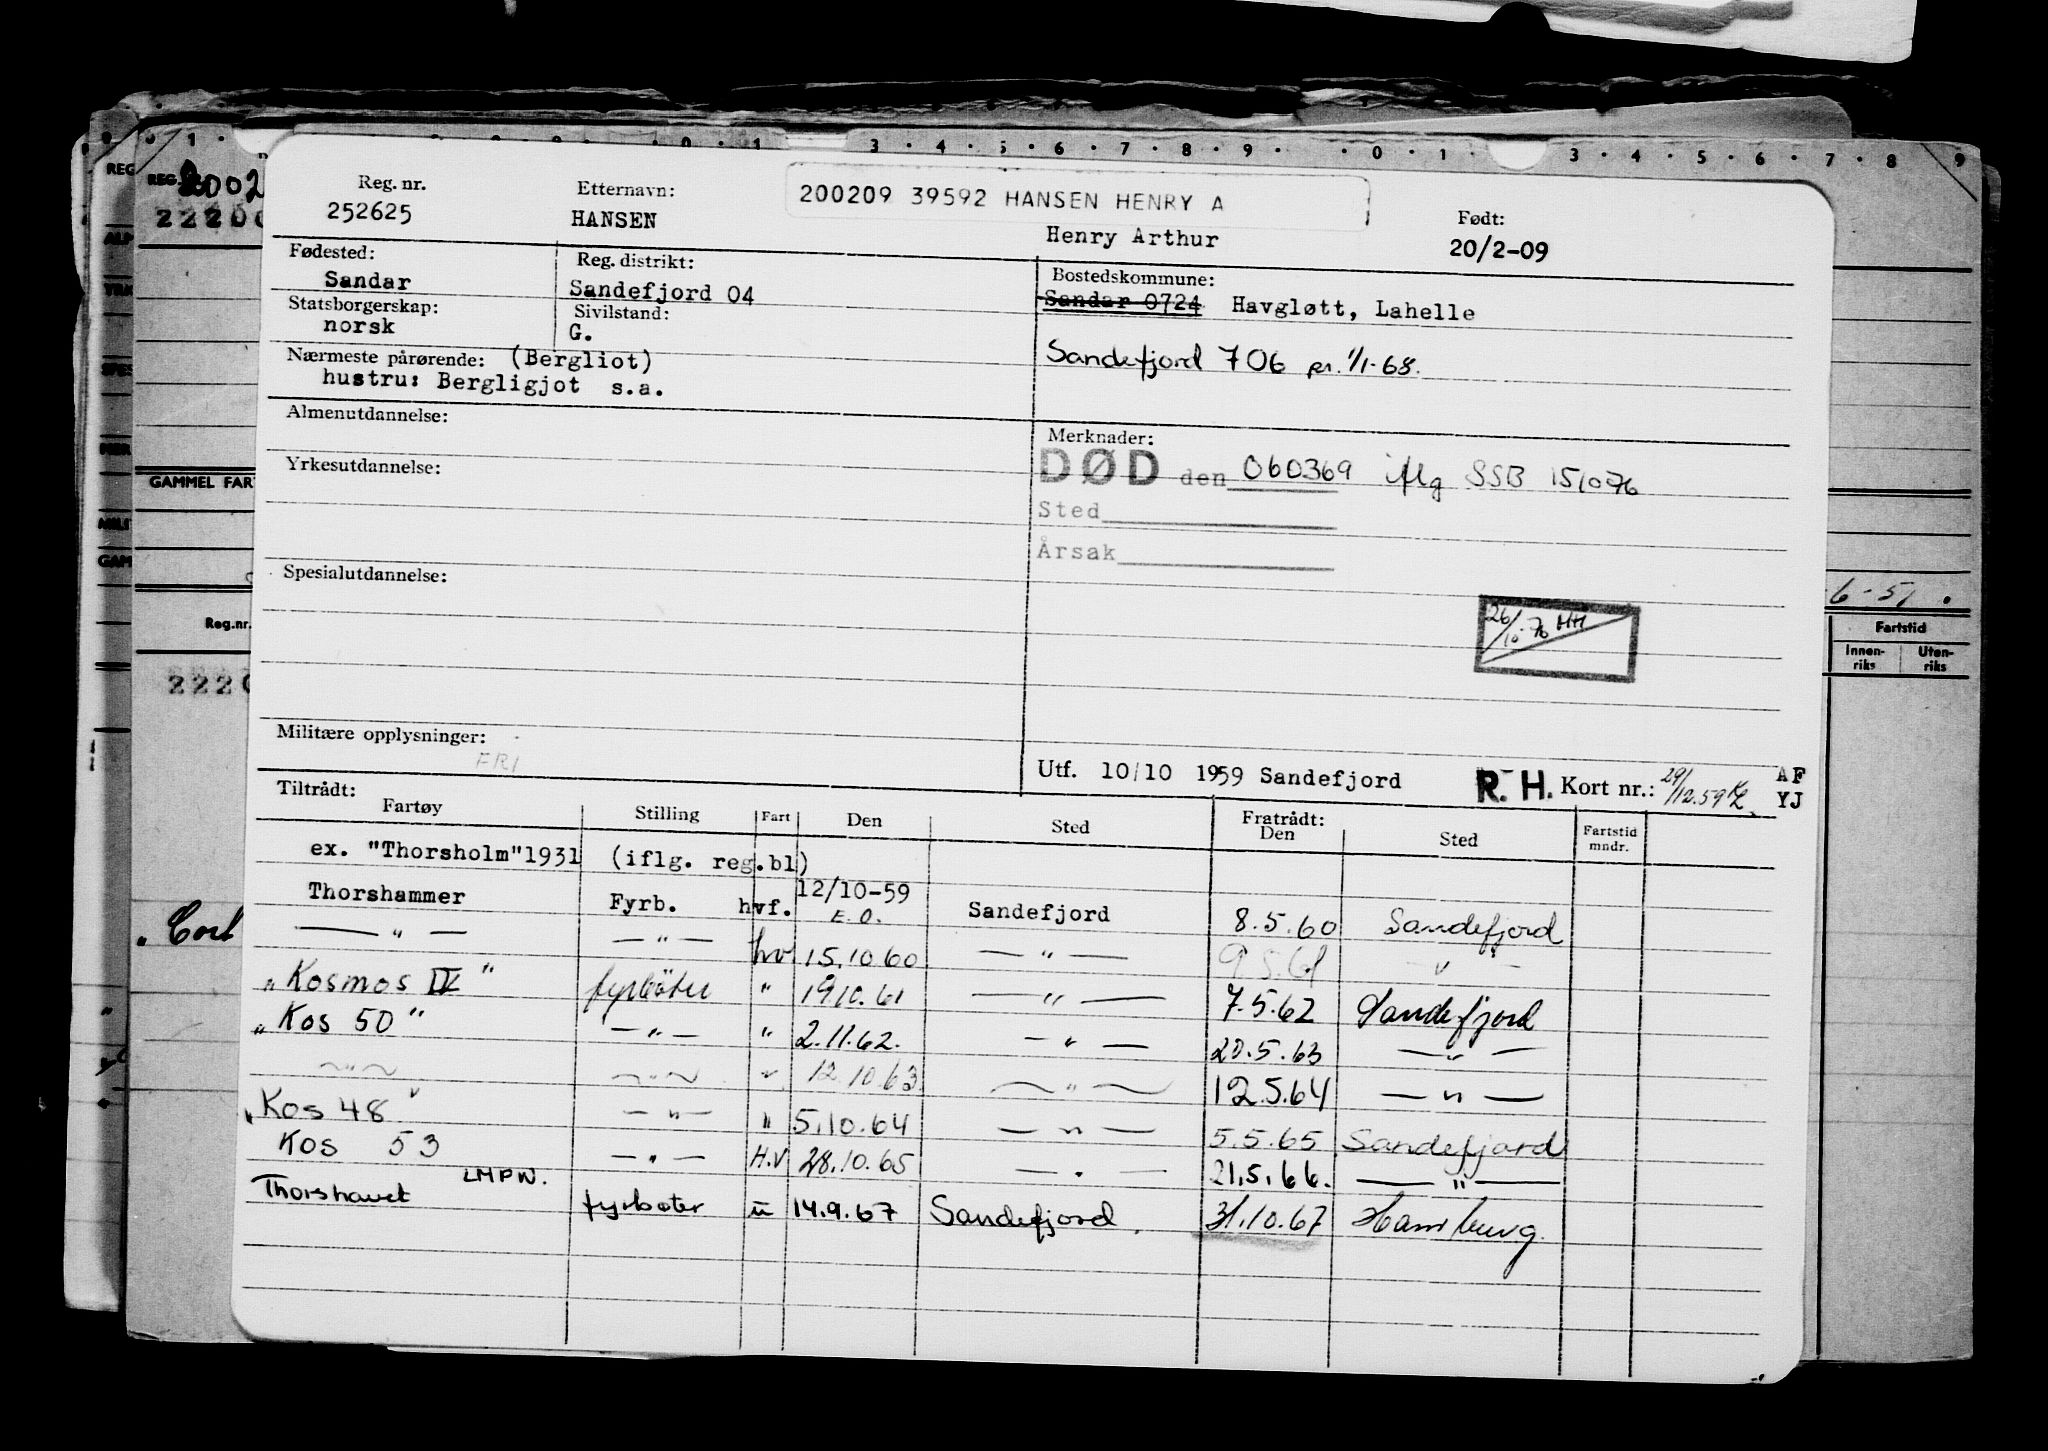 0 1 3 · 4 · 5 · 6 · 7 · 8 · 9 · 0 · 1 · 3 · 4 · 5 · 6 · 7 · 8 9
REG
REG. 2002
2220
Reg. nr. Etternavn: 200209 39592 HANSEN HENRY A Født:
252625 HANSEN Henry Arthur 20/2-09
Fødested: Reg. distrikt: Bostedskommune:
Sandar Sandefjord 04 Sandar 0724 Havgløtt, Lahelle
Statsborgerskap: Sivilstand:
norsk G.
Nærmeste pårørende: (Bergliot) Sandefjord 706 pr. 1/1-68.
hustru: Bergligjot s.a.
Almenutdannelse: Merknader:
DØD den 060369 iflg SSB 151076
Yrkesutdannelse:
Sted
GAMMEL FART
Årsak
Spesialutdannelse:
26/10-76 HH
6-51.
Reg.nr.
Fartstid
Innen-riks Uten-riks
2220
Militære opplysninger:
FRI
Utf. 10/10 1959 Sandefjord R.H. Kort nr.: 29/12.59 AF
YJ
Tiltrådt: Fratrådt:
Fartøy Stilling Fart Den Sted Den Sted Fartstid mndr.
ex. "Thorsholm"1931 (iflg. reg.bl)
Thorshammer Fyrb. hvf. 12/10-59 E.O. Sandefjord 8.5.60 Sandefjord
— " — — " — hv. 15.10.60 — " — 9.5.61 — " —
"Kosmos IV" fyrbøter " 19.10.61 — " — 7.5.62 Sandefjord
"Kos 50" — " — " 2.11.62. — " — 20.5.63 — " —
— " — — " — " 12.10.63. — " — 12.5.64 — " —
"Kos 48" — " — " 5.10.64 — " — 5.5.65 Sandefjord
Kos 53 — " — H.V 28.10.65 — " — 21.5.66. — " —
Thorshavet LMPN. fyrbøter u 14.9.67 Sandefjord. 31.10.67 Hamburg.